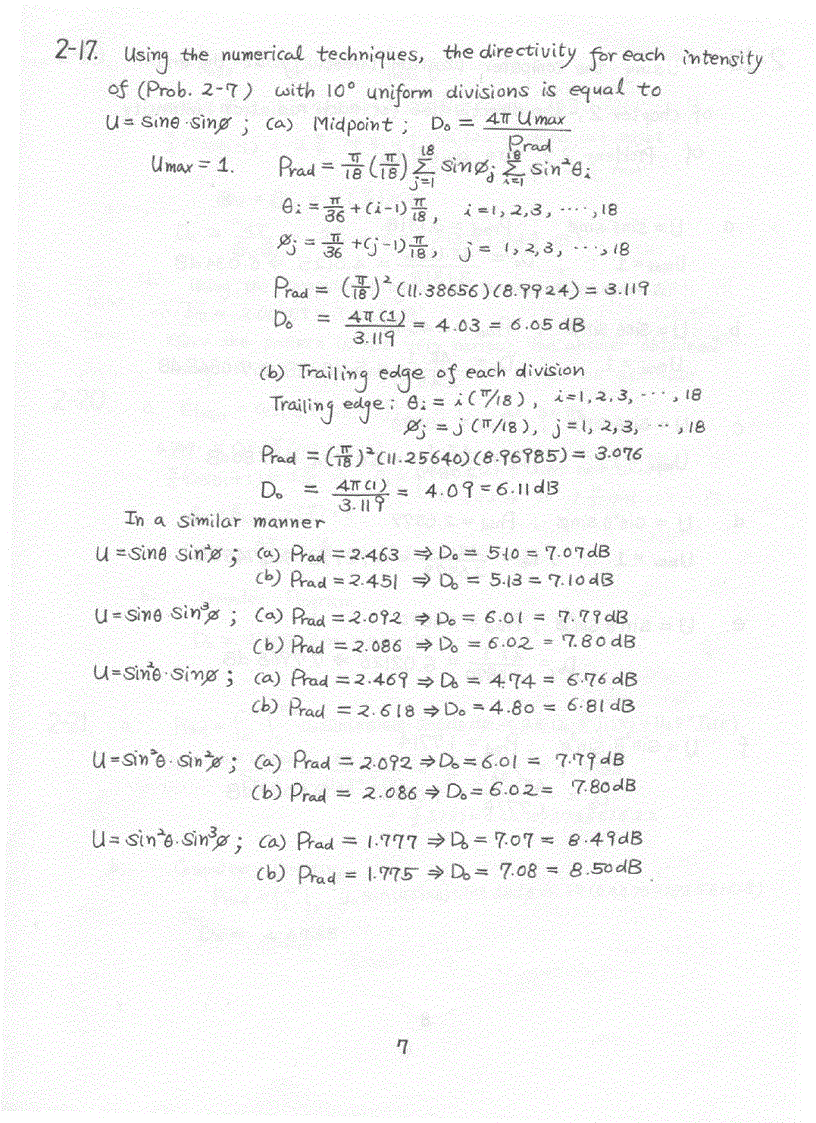 2-17. Using the numerical techniques, the directivity for each intensity
of (Prob. 2-7) with 10° uniform divisions is equal to
U = sinθ·sinø ; (a) Midpoint ; D₀ = 4π Umax / Prad
Umax = 1. Prad = π/18 (π/18) Σ_{j=1}^{18} sinø_j Σ_{i=1}^{18} sin²θ_i
θ_i = π/36 + (i-1) π/18 , i = 1, 2, 3, ····, 18
ø_j = π/36 + (j-1) π/18 , j = 1, 2, 3, ···, 18
Prad = (π/18)² (11.38656)(8.9924) = 3.119
D₀ = 4π(1) / 3.119 = 4.03 = 6.05 dB
(b) Trailing edge of each division
Trailing edge ; θ_i = i(π/18) , i = 1, 2, 3, ···, 18
ø_j = j(π/18), j = 1, 2, 3, ··, 18
Prad = (π/18)² (11.25640)(8.96985) = 3.076
D₀ = 4π(1) / 3.119 = 4.09 = 6.11 dB
In a similar manner
U = sinθ sin²ø ; (a) Prad = 2.463 ⇒ D₀ = 5.10 = 7.07 dB
(b) Prad = 2.451 ⇒ D₀ = 5.13 = 7.10 dB
U = sinθ sin³ø ; (a) Prad = 2.092 ⇒ D₀ = 6.01 = 7.79 dB
(b) Prad = 2.086 ⇒ D₀ = 6.02 = 7.80 dB
U = sin²θ·sinø ; (a) Prad = 2.469 ⇒ D₀ = 4.74 = 6.76 dB
(b) Prad = 2.618 ⇒ D₀ = 4.80 = 6.81 dB
U = sin²θ·sin²ø ; (a) Prad = 2.092 ⇒ D₀ = 6.01 = 7.79 dB
(b) Prad = 2.086 ⇒ D₀ = 6.02 = 7.80 dB
U = sin²θ·sin³ø ; (a) Prad = 1.777 ⇒ D₀ = 7.07 = 8.49 dB
(b) Prad = 1.775 ⇒ D₀ = 7.08 = 8.50 dB .
7